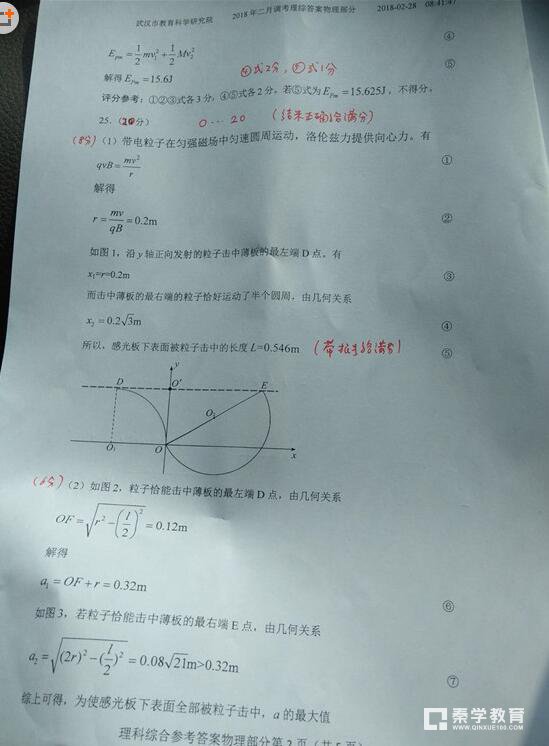 武汉市教育科学研究院
2018年二月调考理综答案物理部分
2018-02-28 08:41:47
E_pm = 1/2 mv₁² + 1/2 Mv₂² ④
解得 E_pm = 15.6J ④式2分，⑤式1分 ⑤
评分参考：①②③式各3分，④⑤式各2分，若⑤式为E_pm = 15.625J，不得分。
25.（20分） 0…20 （结果正确给满分）
（8分）（1）带电粒子在匀强磁场中匀速圆周运动，洛伦兹力提供向心力。有
qvB = mv²/r ①
解得
r = mv/qB = 0.2m ②
如图1，沿y轴正向发射的粒子击中薄板的最左端D点。有
x₁=r=0.2m ③
而击中薄板的最右端的粒子恰好运动了半个圆周，由几何关系
x₂ = 0.2√3m ④
所以，感光板下表面被粒子击中的长度L=0.546m （带根号给满分） ⑤
y
D O′ E
O₂
O₁ O x
（6分）（2）如图2，粒子恰能击中薄板的最左端D点，由几何关系
OF = √(r² − (l/2)²) = 0.12m
解得
a₁ = OF + r = 0.32m ⑥
如图3，若粒子恰能击中薄板的最右端E点，由几何关系
a₂ = √((2r)² − (l/2)²) = 0.08√21m>0.32m ⑦
综上可得，为使感光板下表面全部被粒子击中，a的最大值
理科综合参考答案物理部分第2页（共5页）
秦学教育
WWW.QINXUE100.COM